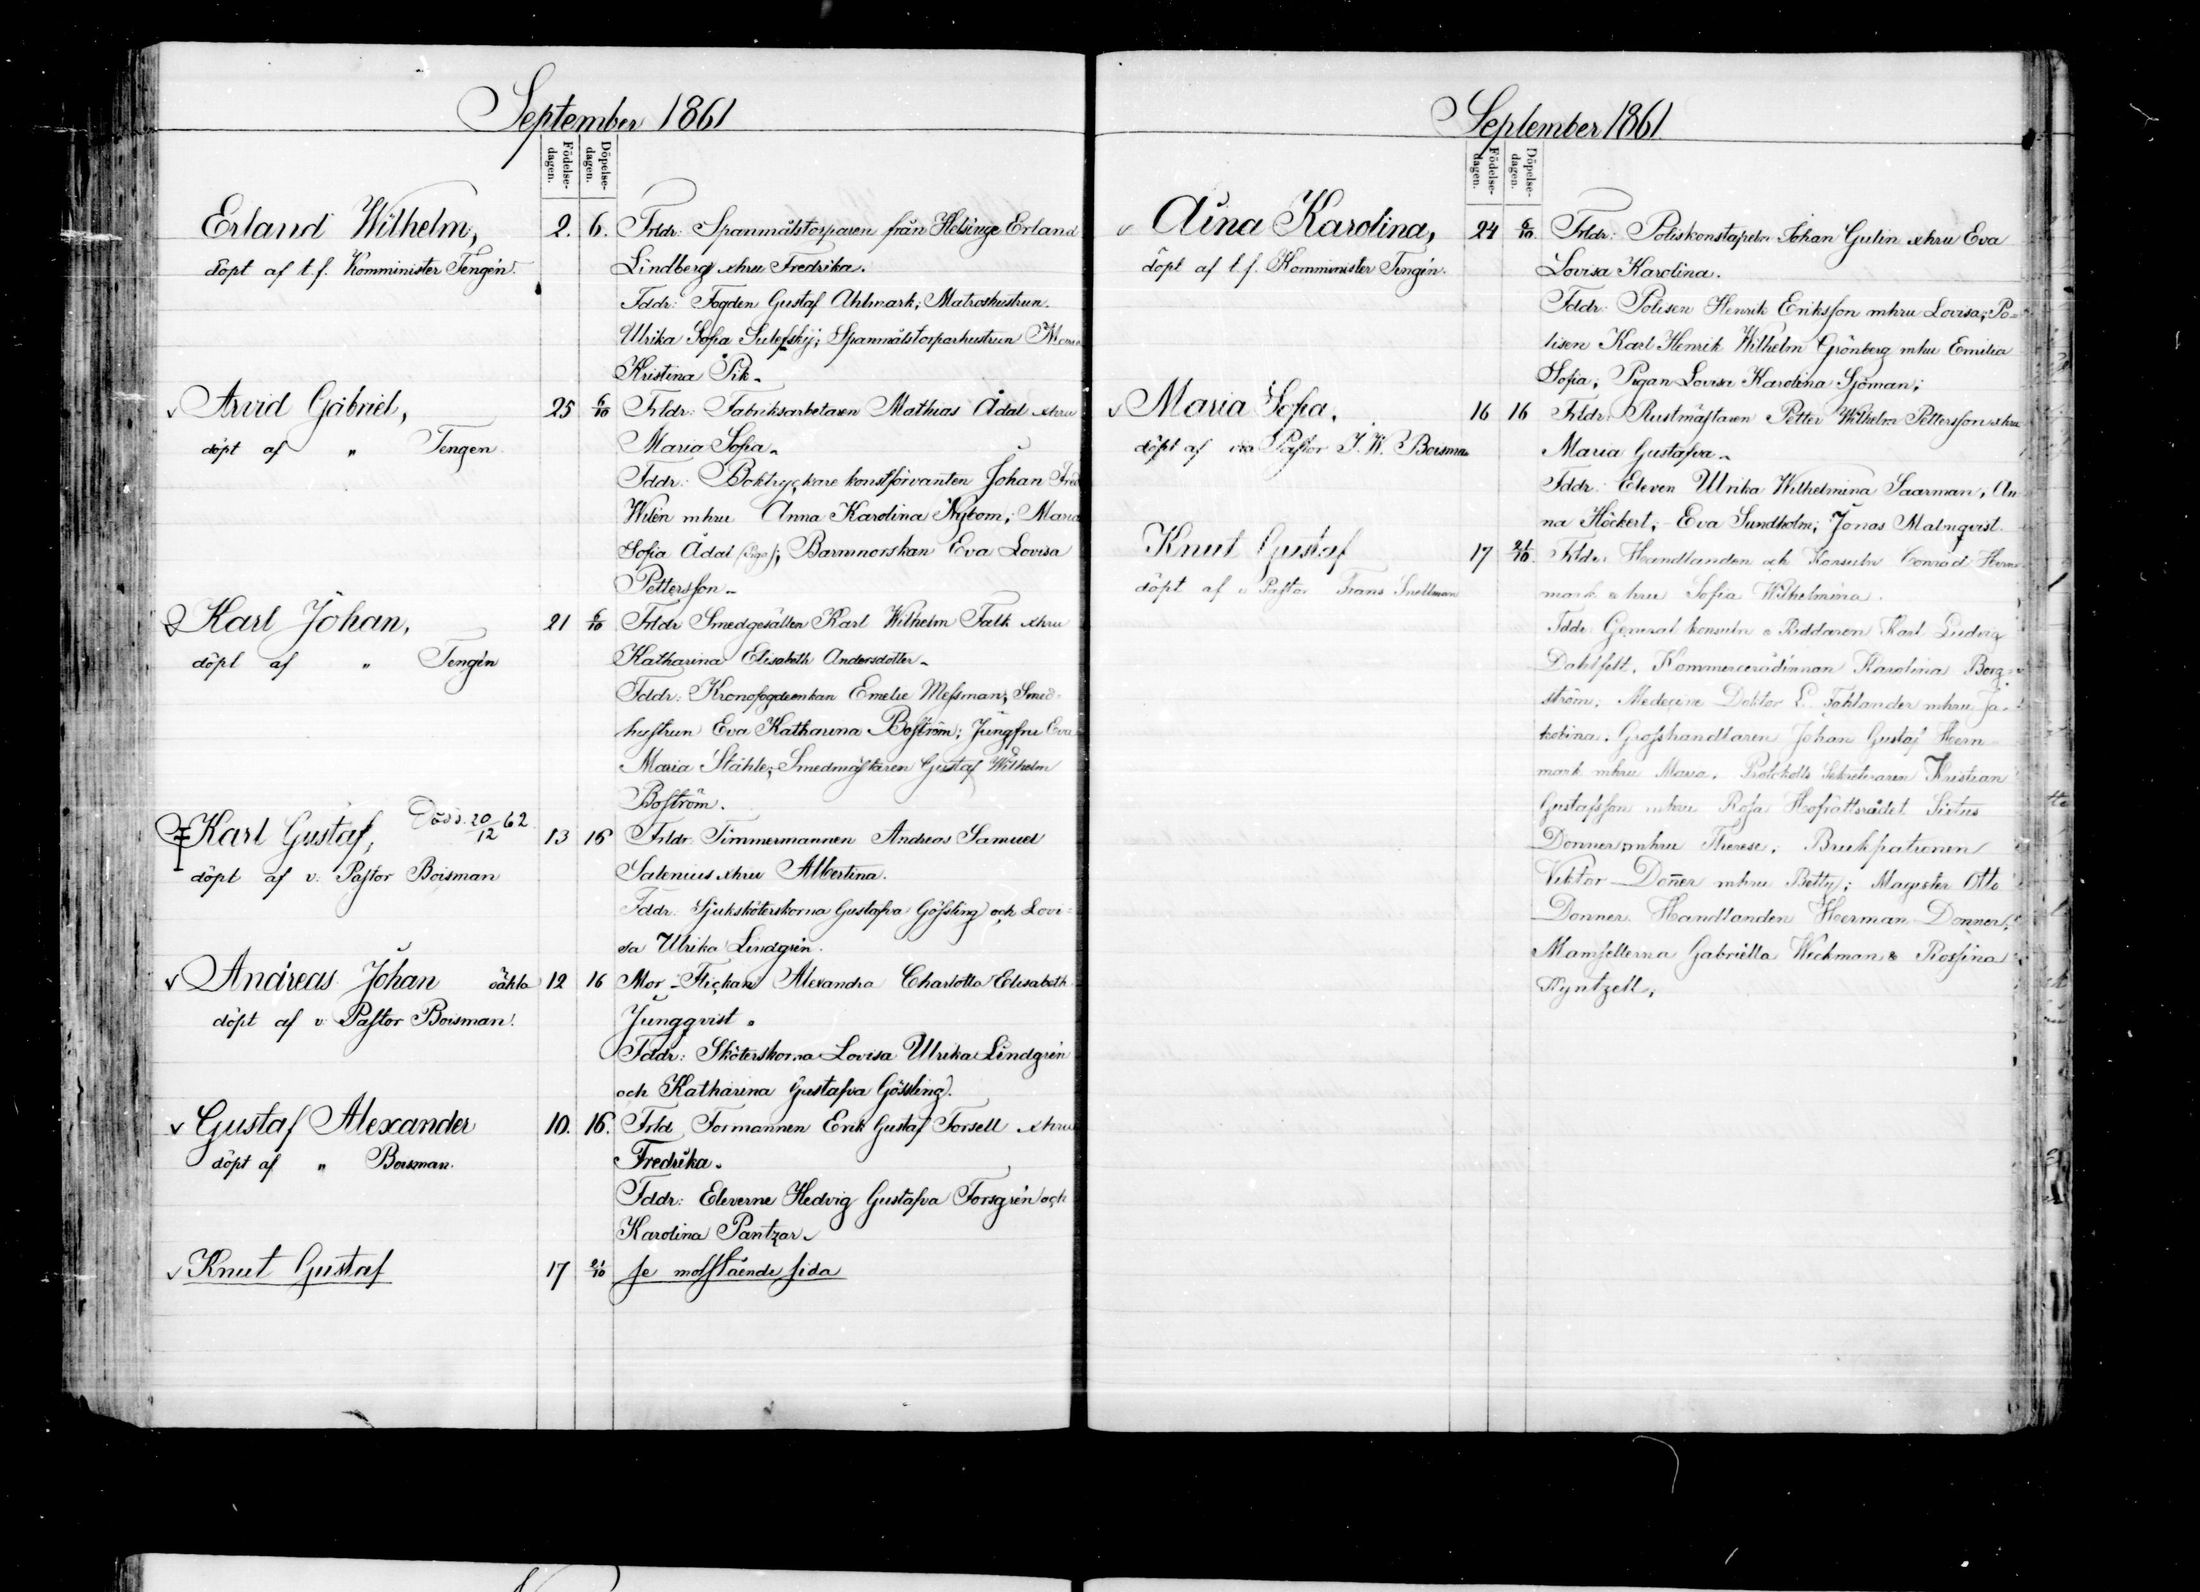 September 1861
Födelse-
dagen.
Döpelse-
dagen.
Erland Wilhelm,
döpt af t.f. Komminister Tengén.
2. 6. Frldr: Spanmålstorparen från Helsinge Erland
Lindberg o hru Fredrika.
Fddr: Fogden Gustaf Ahlmark; Matroshustrun
Ulrika Sofia; Spanmålstorparhustrun Maria
Kristina Pik.
Arvid Gabriel,
döpt af " Tengen
25 6/10 Frldr: Fabriksarbetaren Mathias Ådal o hru
Maria Sofia.
Fddr: Boktryckare konstförvanten Johan Fred
Wilén m hru Anna Karolina Nybom; Maria
Sofia Ådal (Piga); Barnmorskan Eva Lovisa
Pettersson.
Karl Johan,
döpt af " Tengén
21 6/10 Frldr Smedgesällen Karl Wilhelm Falk o hru
Katharina Elisabeth Andersdotter.
Fddr: Kronofogdeenkan Emelie Messman; Smed-
hustrun Eva Katharina Boström; Jungfru Eva
Maria Ståhle; Smedmästaren Gustaf Wilhelm
Boström.
Karl Gustaf, Död d. 20/12 62
döpt af v. Pastor Boisman
13 16 Frldr Timmermannen Andreas Samuel
Salenius o hru Albertina.
Fddr: Sjuksköterskorna Gustafva Gössling och Lovi-
sa Ulrika Lindgrén.
Andreas Johan oäkta
döpt af v Pastor Boisman.
12 16 Mor - Flickan Alexandra Charlotta Elisabeth
Jungqvist.
Fddr: Sköterskorna Lovisa Ulrika Lindgrén
och Katharina Gustafva Gössling.
Gustaf Alexander
döpt af " Boisman.
10. 16. Frld Formannen Erik Gustaf Forsell o hru
Fredrika.
Fddr: Eleverne Hedvig Gustafva Forsgrén och
Karolina Pantzar.
Knut Gustaf 17 21/10 se motstående sida
September 1861
Födelse-
dagen.
Döpelse-
dagen.
Aina Karolina,
döpt af t.f. Komminister Tengén.
24 6/10 Frldr: Poliskonstapeln Johan Gulin o hru Eva
Lovisa Karolina.
Fddr: Polisen Henrik Eriksson m hru Lovisa; Po-
lisen Karl Henrik Wilhelm Grönberg m hru Emilia
Sofia; Pigan Lovisa Karolina Sjöman;
Maria Sofia,
döpt af Pastor J. W. Boisman
16 16 Frldr: Rustmästaren Petter Wilhelm Pettersson o hru
Maria Gustafva.
Fddr: Eleven Ulrika Wilhelmina Saarman, An-
na Höckert; Eva Sundholm; Jonas Malmqvist.
Knut Gustaf
döpt af v Pastor Frans Snellman
17 21/10 Frldr: Handlanden och Konsuln Conrad Hern-
mark o hru Sofia Wilhelmina.
Fddr General konsuln o Riddaren Karl Ludvig
Dahlfelt, Kommercerådinnan Karolina Borg-
ström; Medecine Doktor L. Fahlander m hru Ja-
kobina. Grosshandlaren Johan Gustaf Hern-
mark m hru Maria. Protokolls Sekreteraren Kristian
Gustafsson m hru Rosa Hofrättsrådet Sixtus
Donner m hru Therese; Brukspatronen
Viktor Donner m hru Betty; Magister Otto
Donner Handlanden Herman Donner;
Mamsellerna Gabriella Weckman & Rosina
Kyntzell,